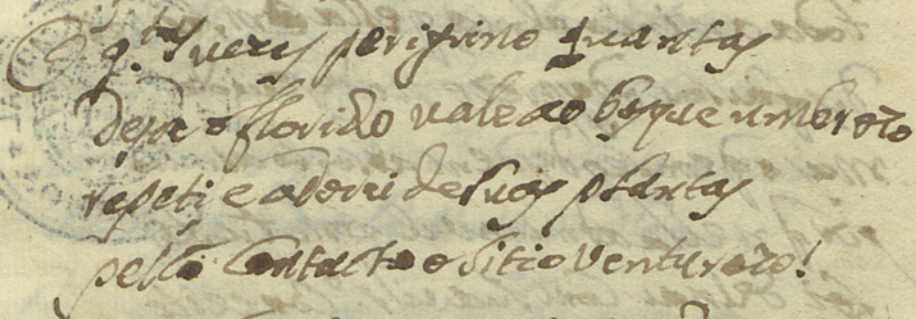 O q.tas vezes perigrino quantas
desde o florido vale ao bosque umbrozo
repeti e adorei de suas plantas
pello contacto o sitio venturozo!